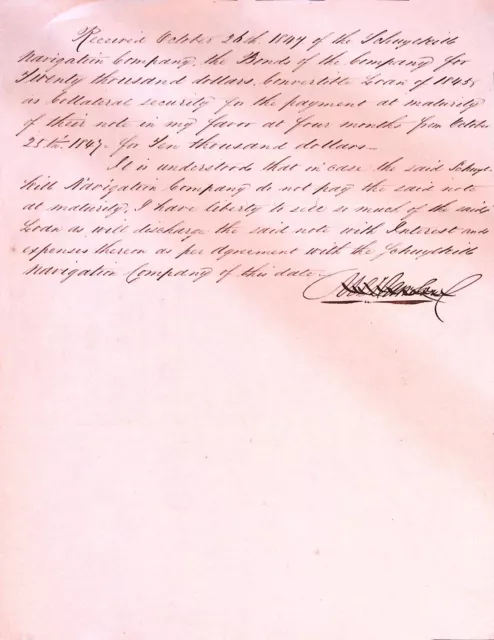 Received October 26th 1847 of the Schuylkill
Navigation Company, the Bonds of the Company for
Twenty thousand dollars, Convertible Loan of 1845,
as Collateral security for the payment at maturity
of their note in my favor at four months from October
25th. 1847. for Ten thousand dollars—
It is understood that in case the said Schuyl-
kill Navigation Company do not pay the said note
at maturity, I have liberty to sell so much of the said
Loan as will discharge the said note with Interest and
expenses thereon as per Agreement with the Schuylkill
Navigation Company of this date—